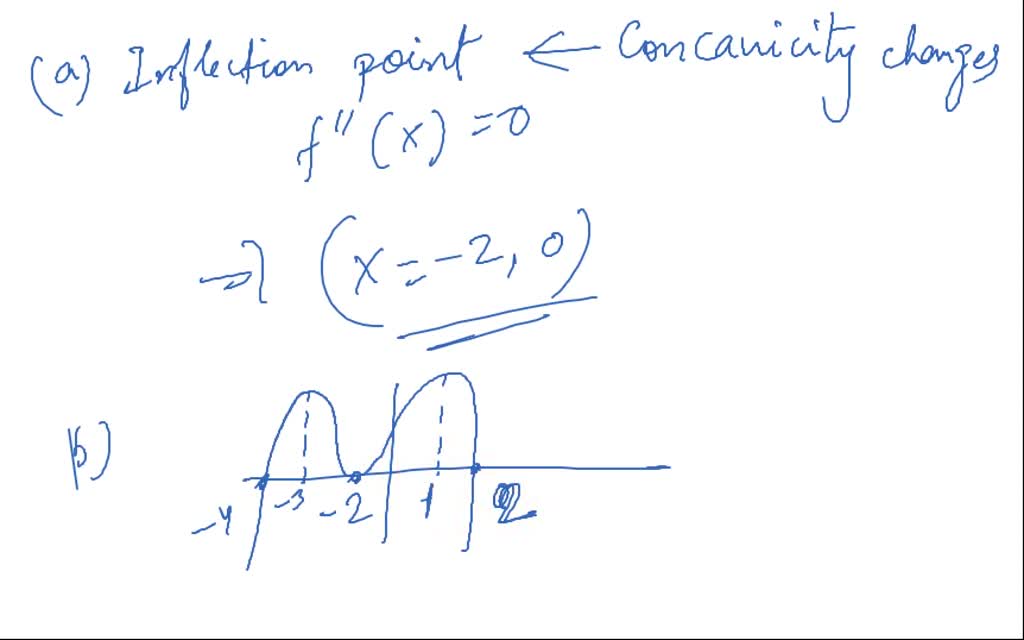 (a) Inflection point ← Concanicity changes
f''(x) = 0
→ (x = -2, 0)
b)
-4 -3 -2 1 2